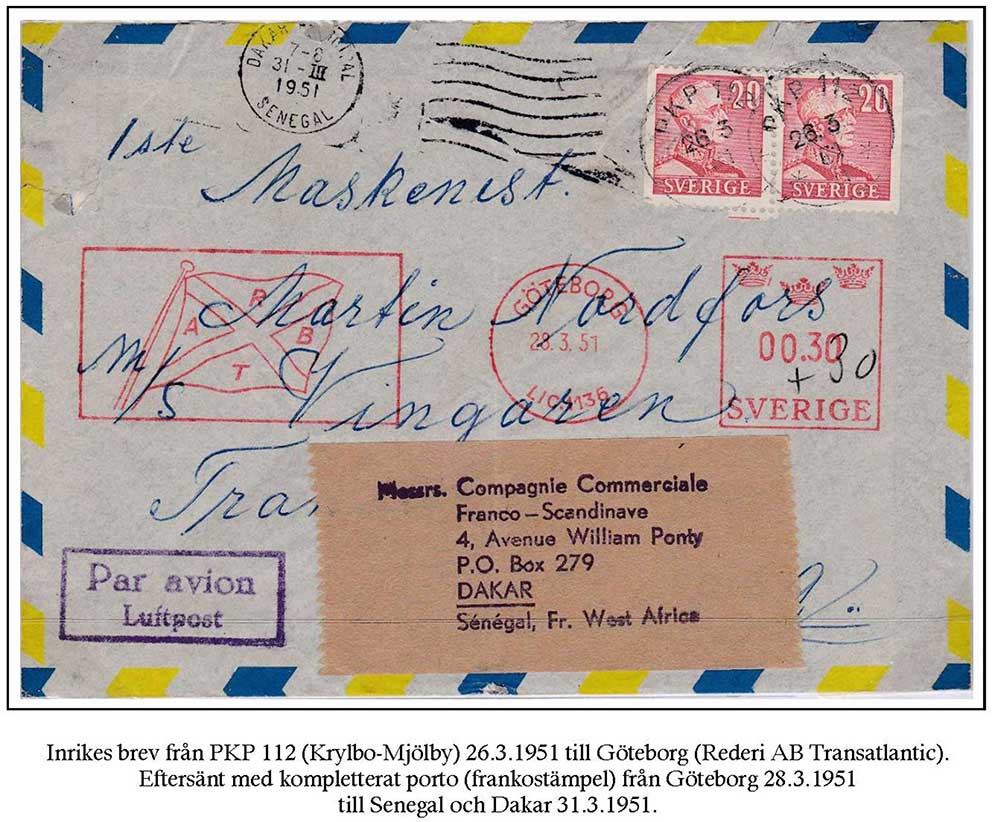 DAKAR
31 - III
1951
SENEGAL
20
SVERIGE
20
SVERIGE
PKP 112
26.3
PKP 112
26.3
1ste
Maskenist.
Martin Nordfors
M/S Vingaren
R
A B
T
GÖTEBORG
28.3.51
LIC. 1136
00.30
+ 30
SVERIGE
Messrs. Compagnie Commerciale
Franco – Scandinave
4, Avenue William Ponty
P.O. Box 279
DAKAR
Sénégal, Fr. West Africa
Par avion
Luftpost
Inrikes brev från PKP 112 (Krylbo-Mjölby) 26.3.1951 till Göteborg (Rederi AB Transatlantic).
Eftersänt med kompletterat porto (frankostämpel) från Göteborg 28.3.1951
till Senegal och Dakar 31.3.1951.